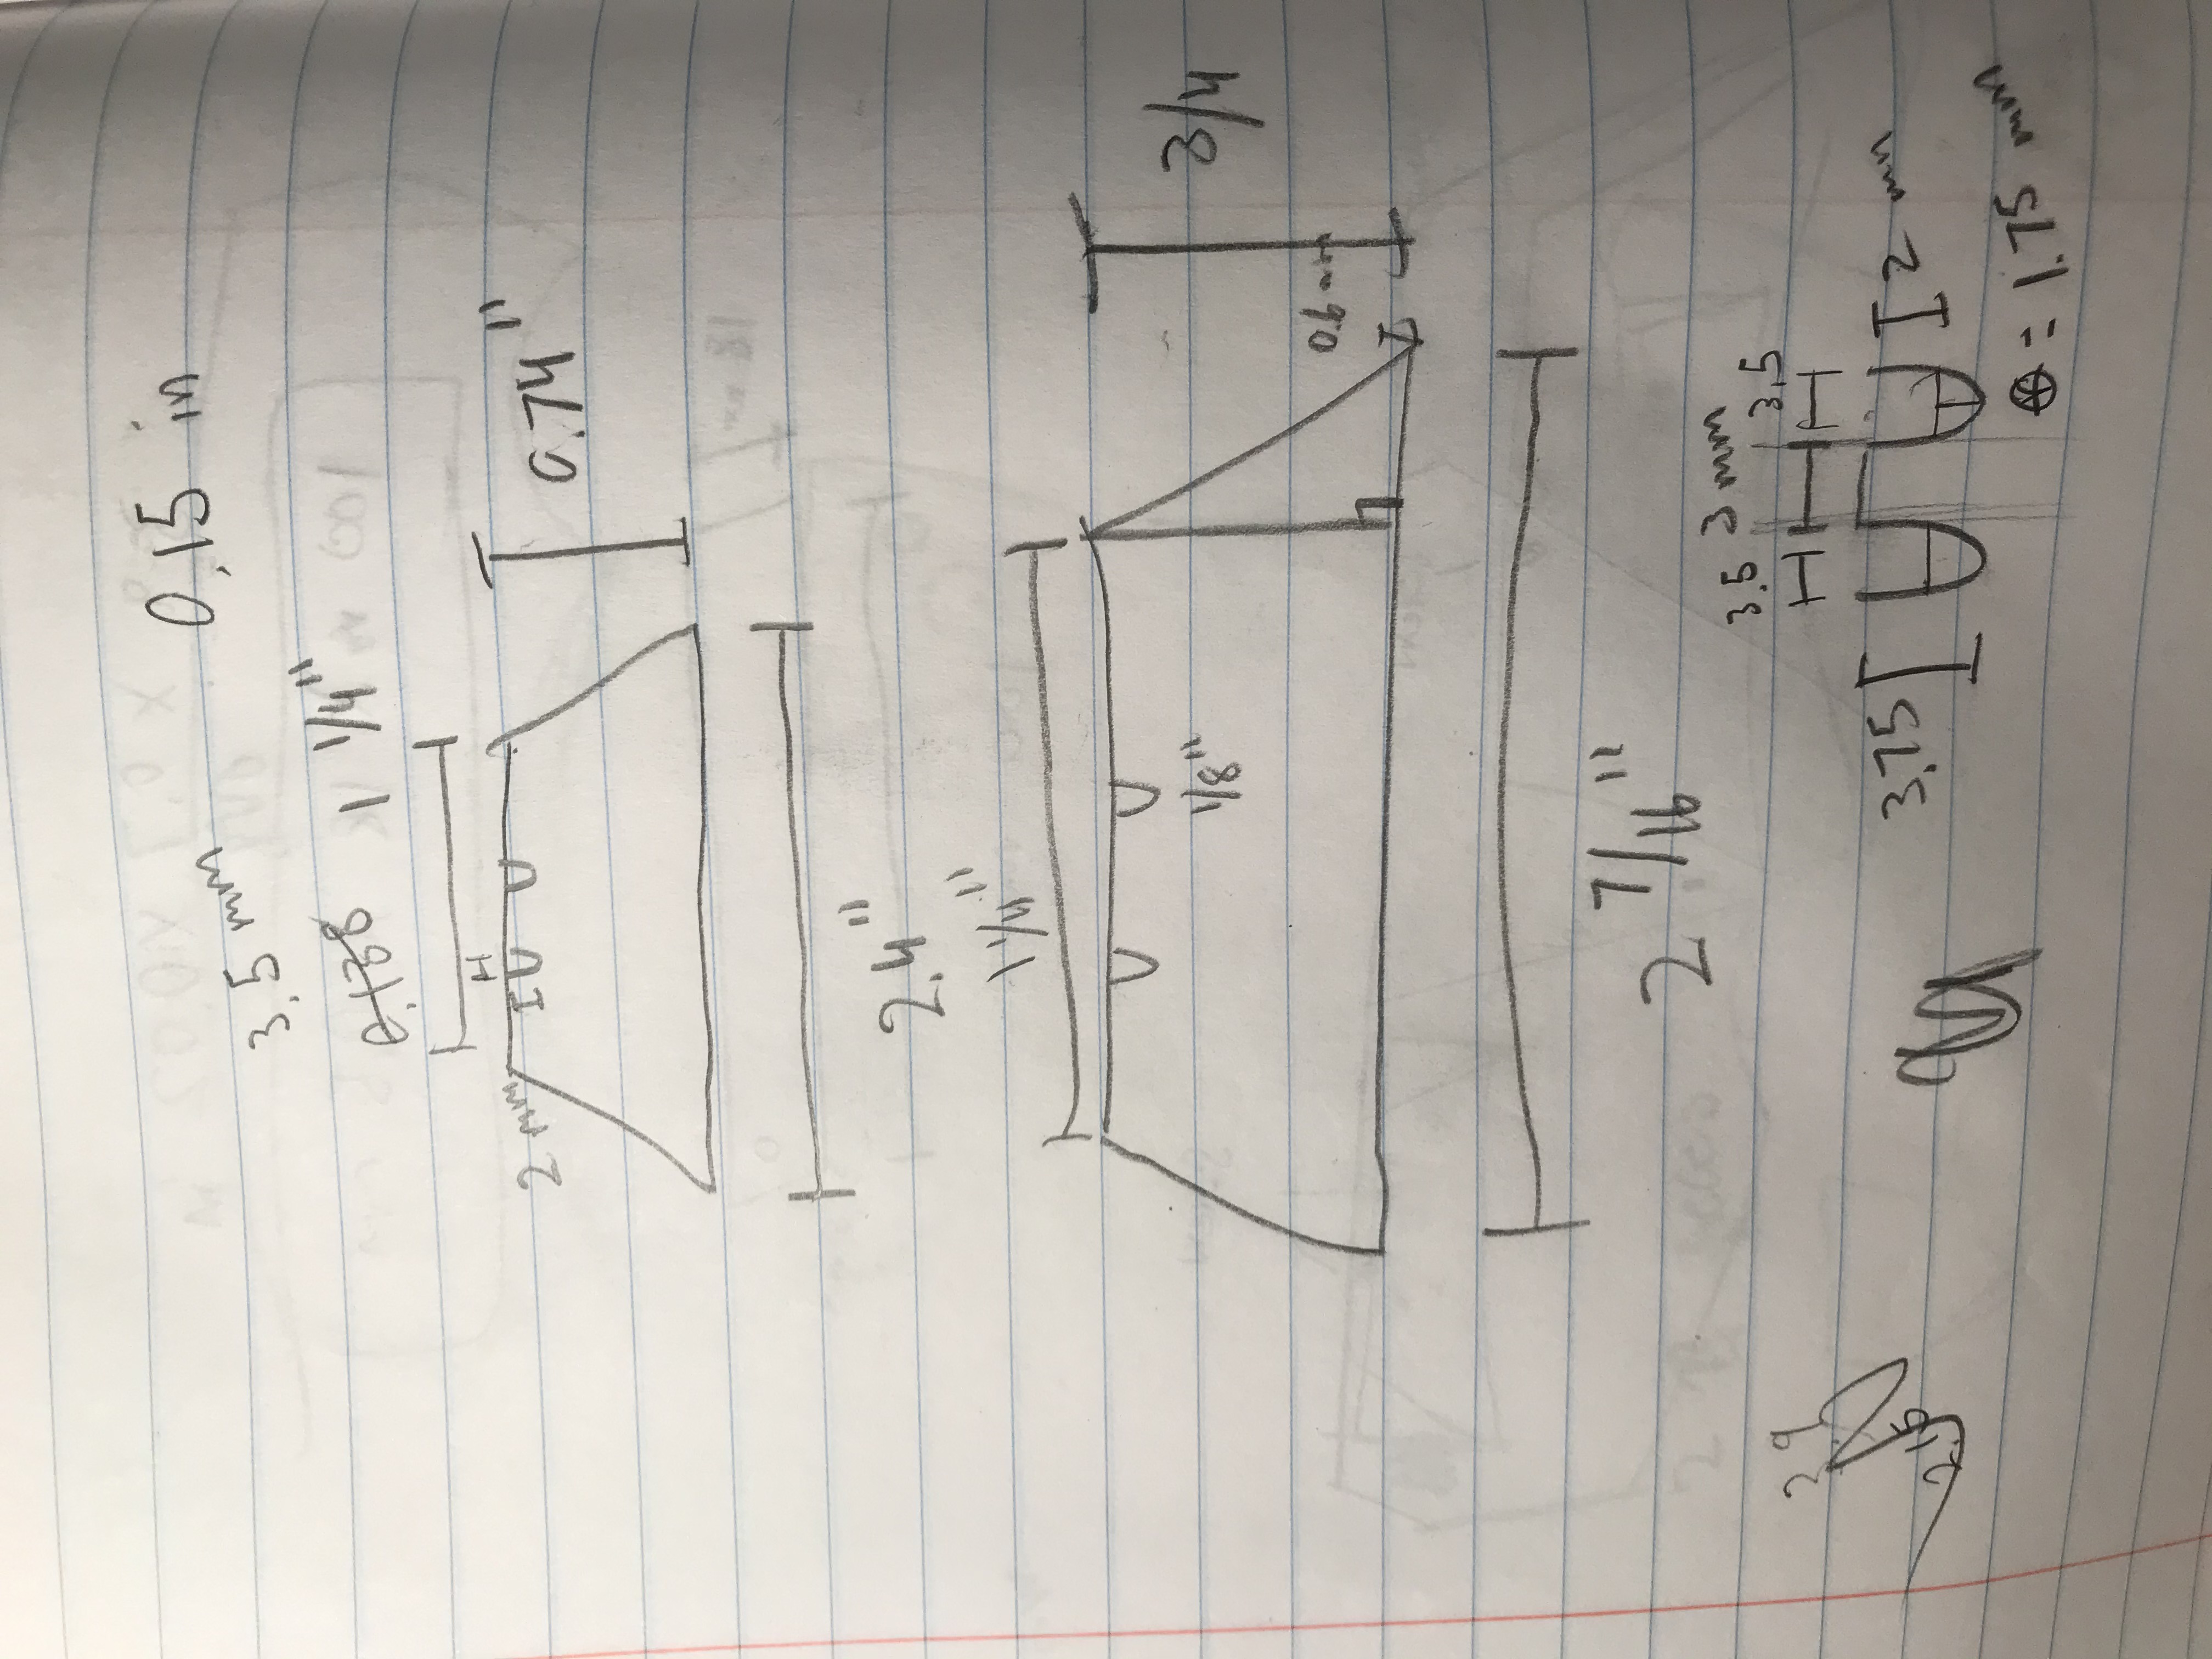 0.15 in
3.5 mm
0.138
1 1/4"
2 mm
0.74"
2.4"
1 1/4"
1/8"
3/4
0.6 mm
2 7/16"
3.5 3 mm 3.5
3.75
2 mm
= 1.75 mm